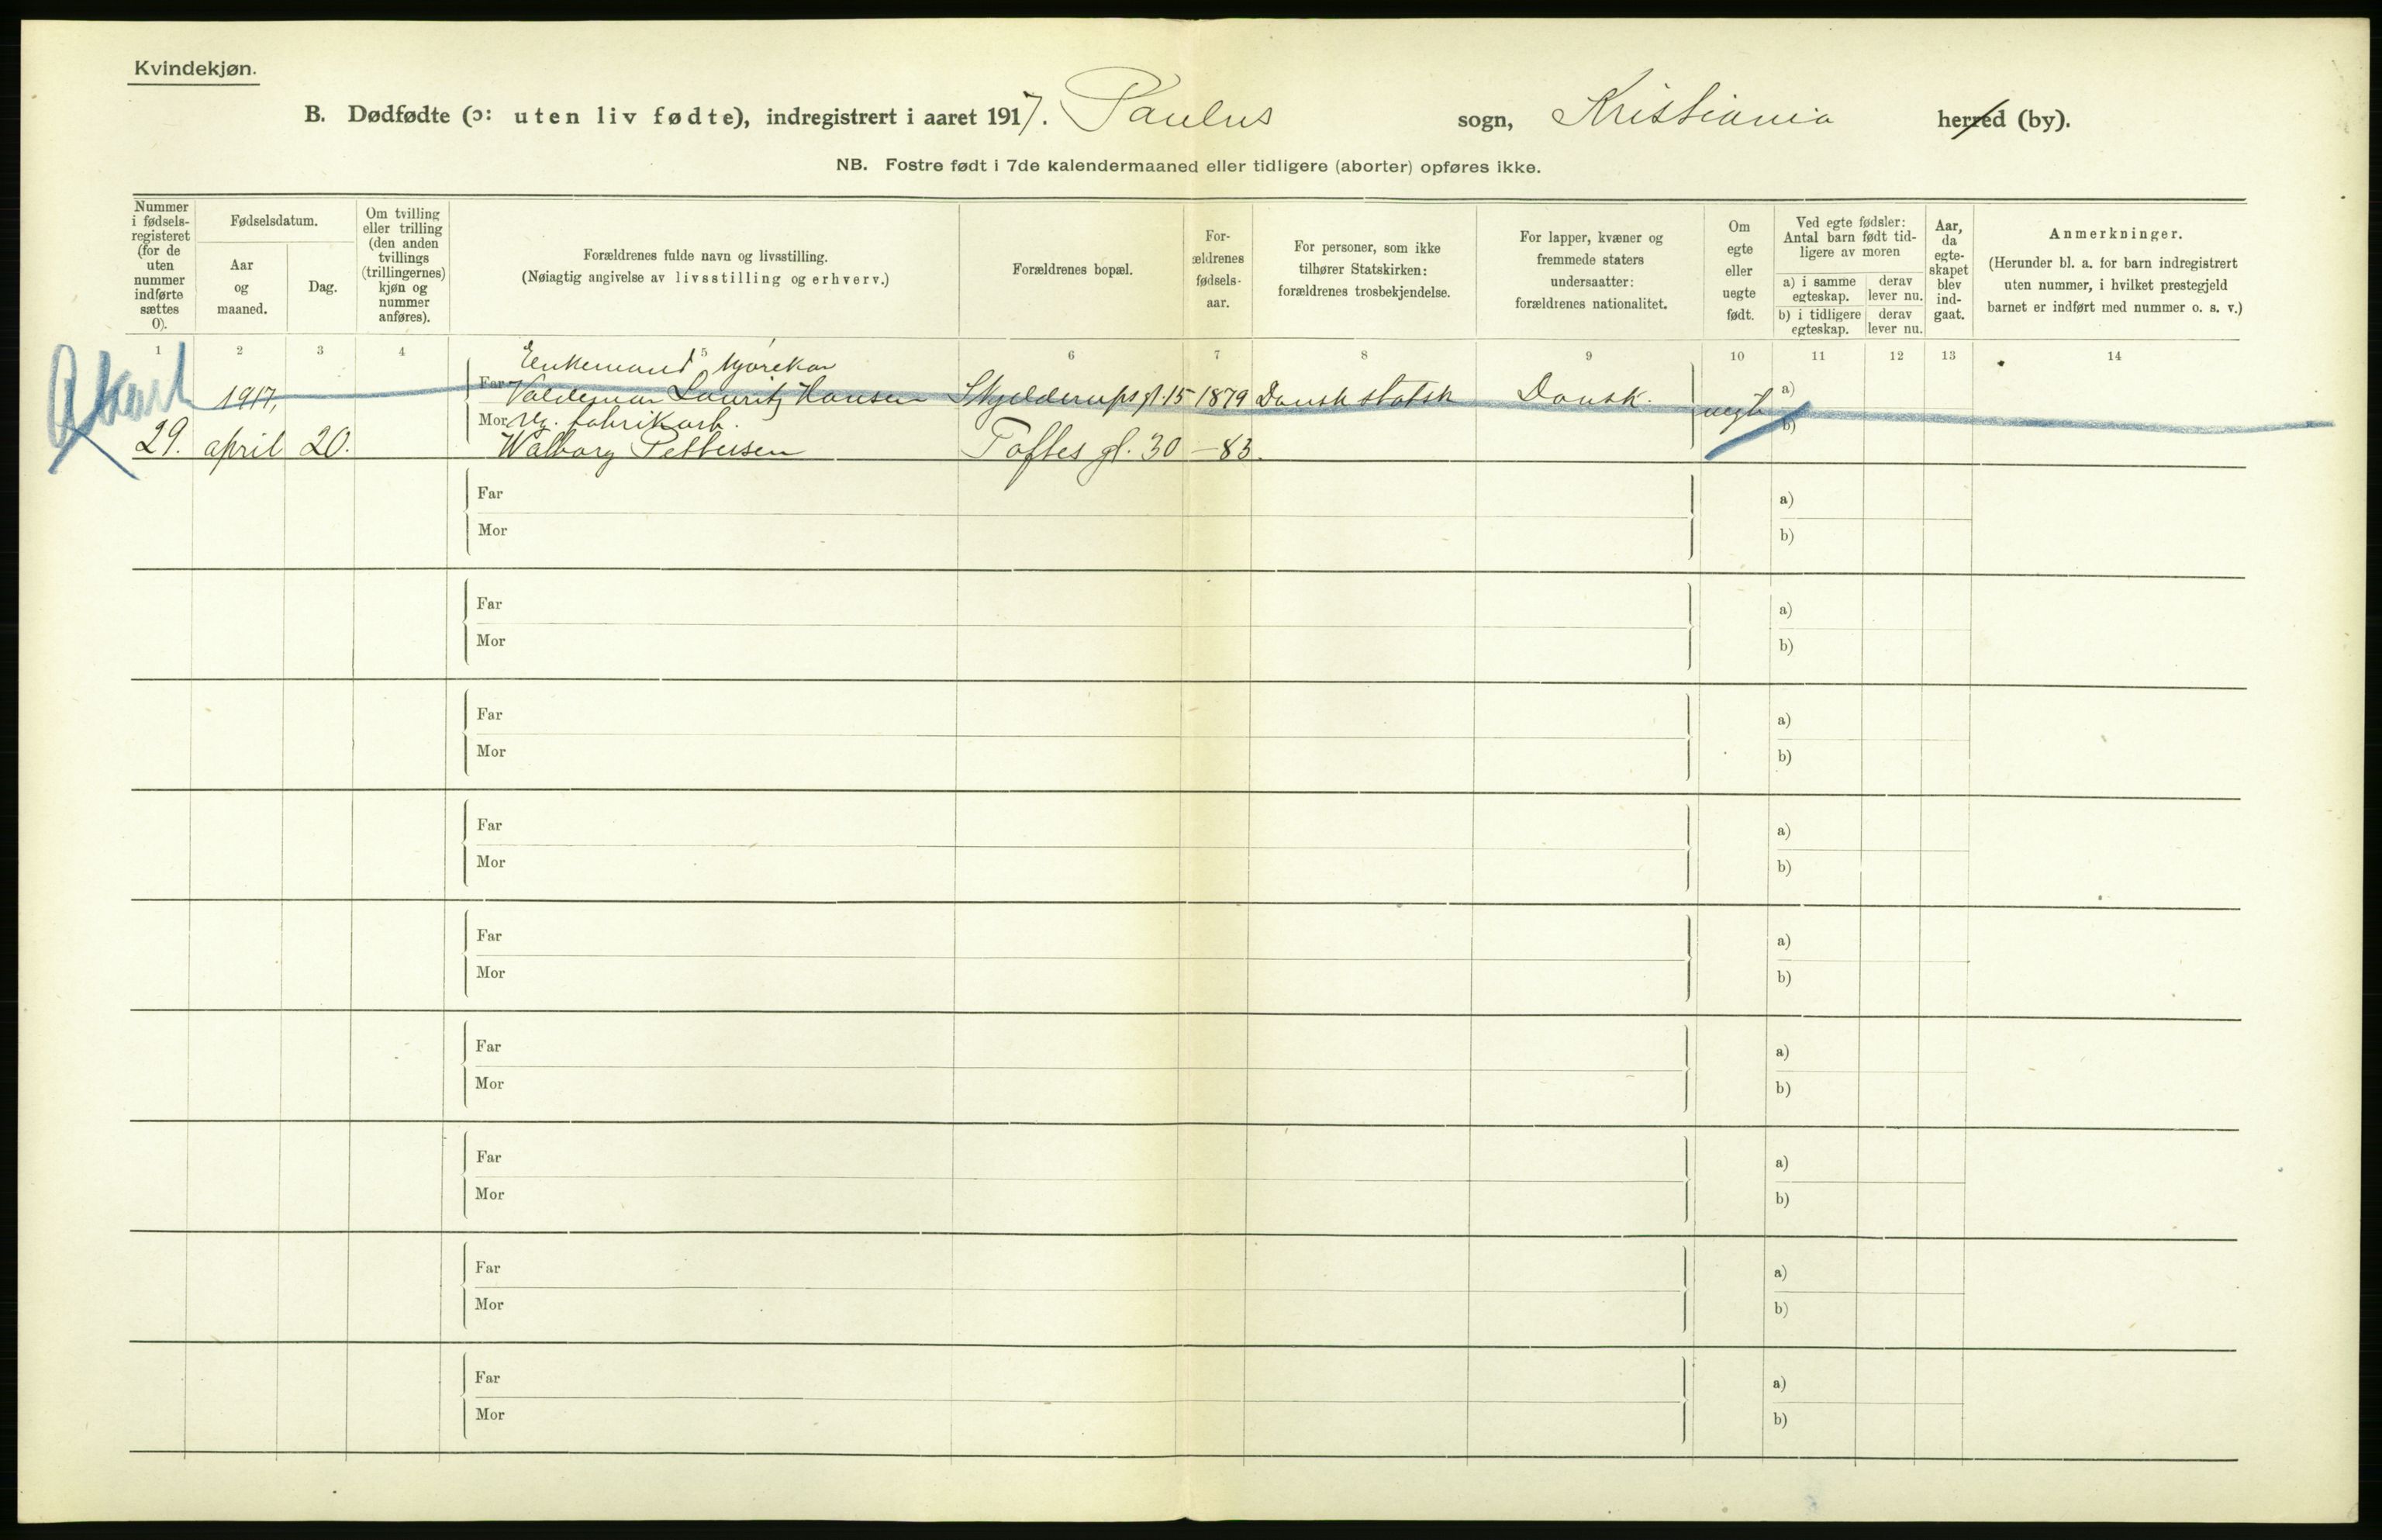 Kvindekjøn.
B. Dødfødte (ɔ: uten liv fødte), indregistrert i aaret 1917. Paulus sogn, Kristiania herred (by).
NB. Fostre født i 7de kalendermaaned eller tidligere (aborter) opføres ikke.
Nummer i fødsels-registeret (for de uten nummer indførte sættes 0).
Fødselsdatum.
Aar og maaned.
Dag.
Om tvilling eller trilling (den anden tvillings (trillingernes) kjøn og nummer anføres).
Forældrenes fulde navn og livsstilling.
(Nøiagtig angivelse av livsstilling og erhverv.)
Forældrenes bopæl.
For-ældrenes fødsels-aar.
For personer, som ikke tilhører Statskirken: forældrenes trosbekjendelse.
For lapper, kvæner og fremmede staters undersaatter: forældrenes nationalitet.
Om egte eller uegte født.
Ved egte fødsler: Antal barn født tid-ligere av moren
a) i samme egteskap.
derav lever nu.
b) i tidligere egteskap.
derav lever nu.
Aar, da egte-skapet blev ind-gaat.
Anmerkninger.
(Herunder bl. a. for barn indregistrert uten nummer, i hvilket prestegjeld barnet er indført med nummer o. s. v.)
1 2 3 4 5 6 7 8 9 10 11 12 13 14
Enkemand kjørekar
1917, Far Valdemar Lauritz Hansen Skjelderups gt. 15 1879 Dansk statsk Dansk. uegte a)
Mor fabrikarb. b)
29. april 20. Walborg Pettersen Toftes gt. 30 -83.
Far a)
Mor b)
Far a)
Mor b)
Far a)
Mor b)
Far a)
Mor b)
Far a)
Mor b)
Far a)
Mor b)
Far a)
Mor b)
Far a)
Mor b)
Far a)
Mor b)